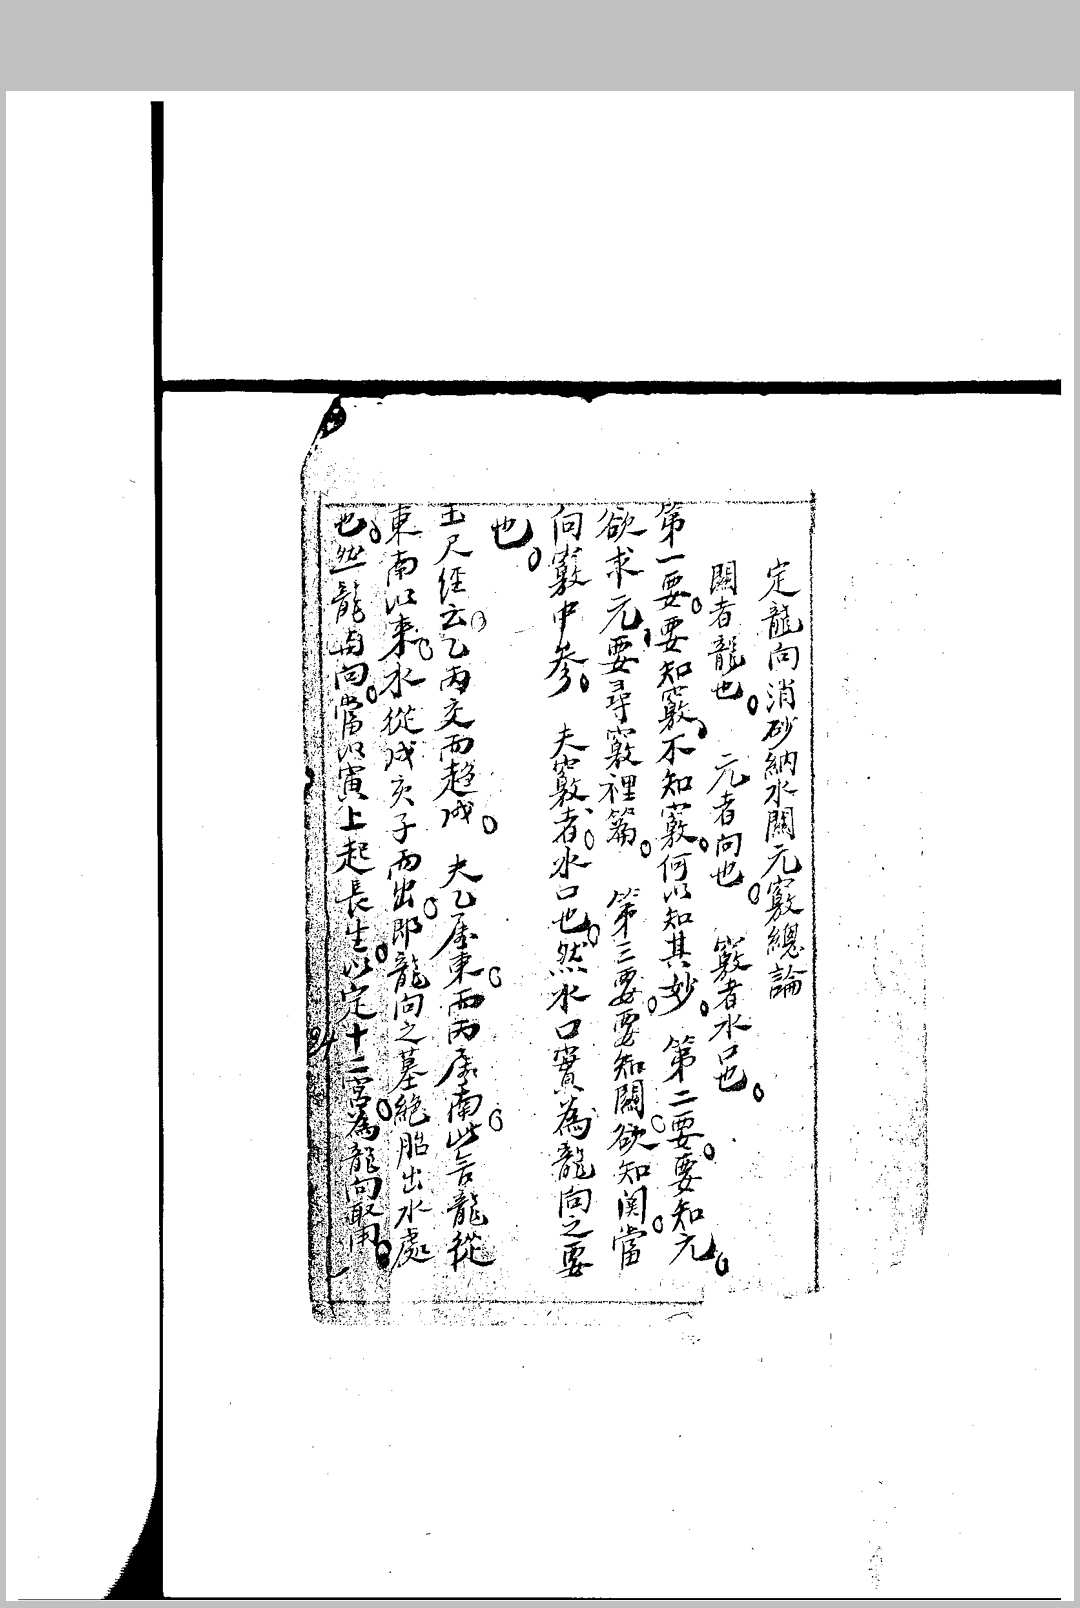 定龍向消砂納水關元竅總論
關者龍也。 元者向也。 竅者水口也。
第一要。要知竅、不知竅。何以知其妙。 第二要。要知元。
欲求元、要尋竅裡篇。 第三要。要知關。欲知関。當
向竅中參。 夫竅者。水口也。然水口實為龍向之要
也。
玉尺經云。乙丙交而趨戌。 夫乙居東。而丙居南。此言龍從
東南以來。水從戌亥子而出。即龍向之墓絶胎出水處
也。然龍與向。當以寅上起長生。以定十二宮。為龍向取用。